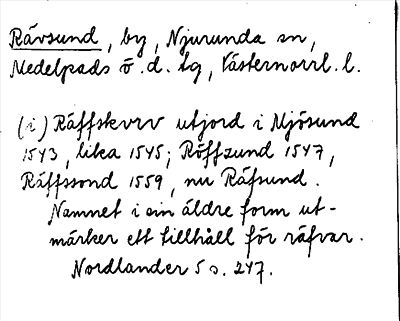 Rävsund, by, Njurunda sn,
Medelpads ö. d. tg, Västernorrl. l.
(i) Räffskvrv utjord i Mjösund
1543, lika 1545; Röffzund 1547,
Räffssond 1559, nu Räfsund.
Namnet i sin äldre form ut-
märker ett tillhåll för räfvar.
Nordlander 5 s. 247.